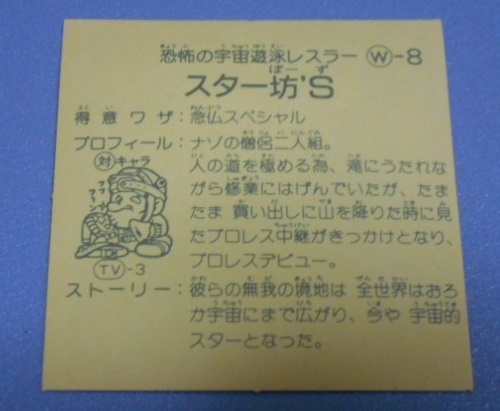 恐怖の宇宙遊泳レスラー Ⓦ-8
スター坊'S
得意ワザ：念仏スペシャル
プロフィール：ナゾの僧侶二人組。
人の道を極める為、滝にうたれな
がら修業にはげんでいたが、たま
たま 買い出しに山を降りた時に見
たプロレス中継がきっかけとなり、
プロレスデビュー。
対キャラ
TV-3
ストーリー：彼らの無我の境地は 全世界はおろ
か宇宙にまで広がり、今や 宇宙的
スターとなった。